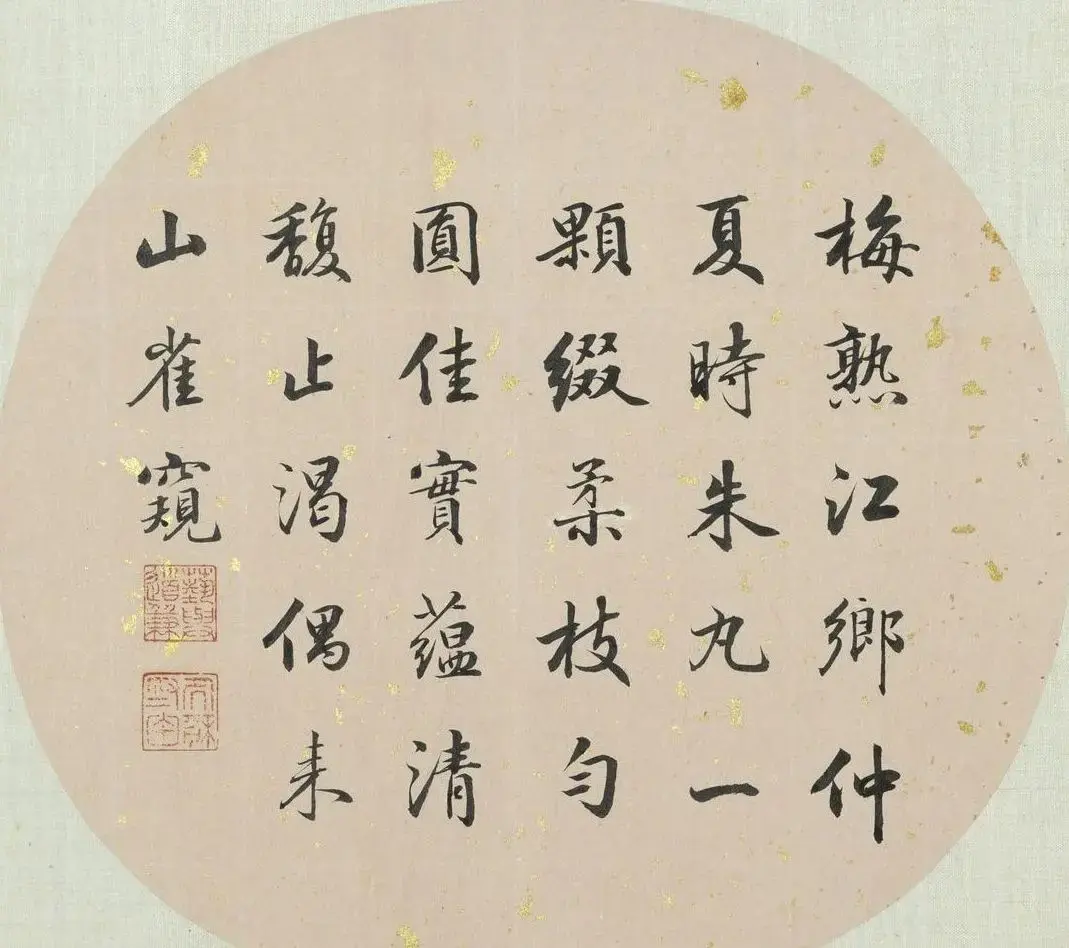 梅熟江鄉仲
夏時朱丸一
顆綴柔枝勻
圓佳實蘊清
馥止渴偶来
山雀窺
藝與道兼